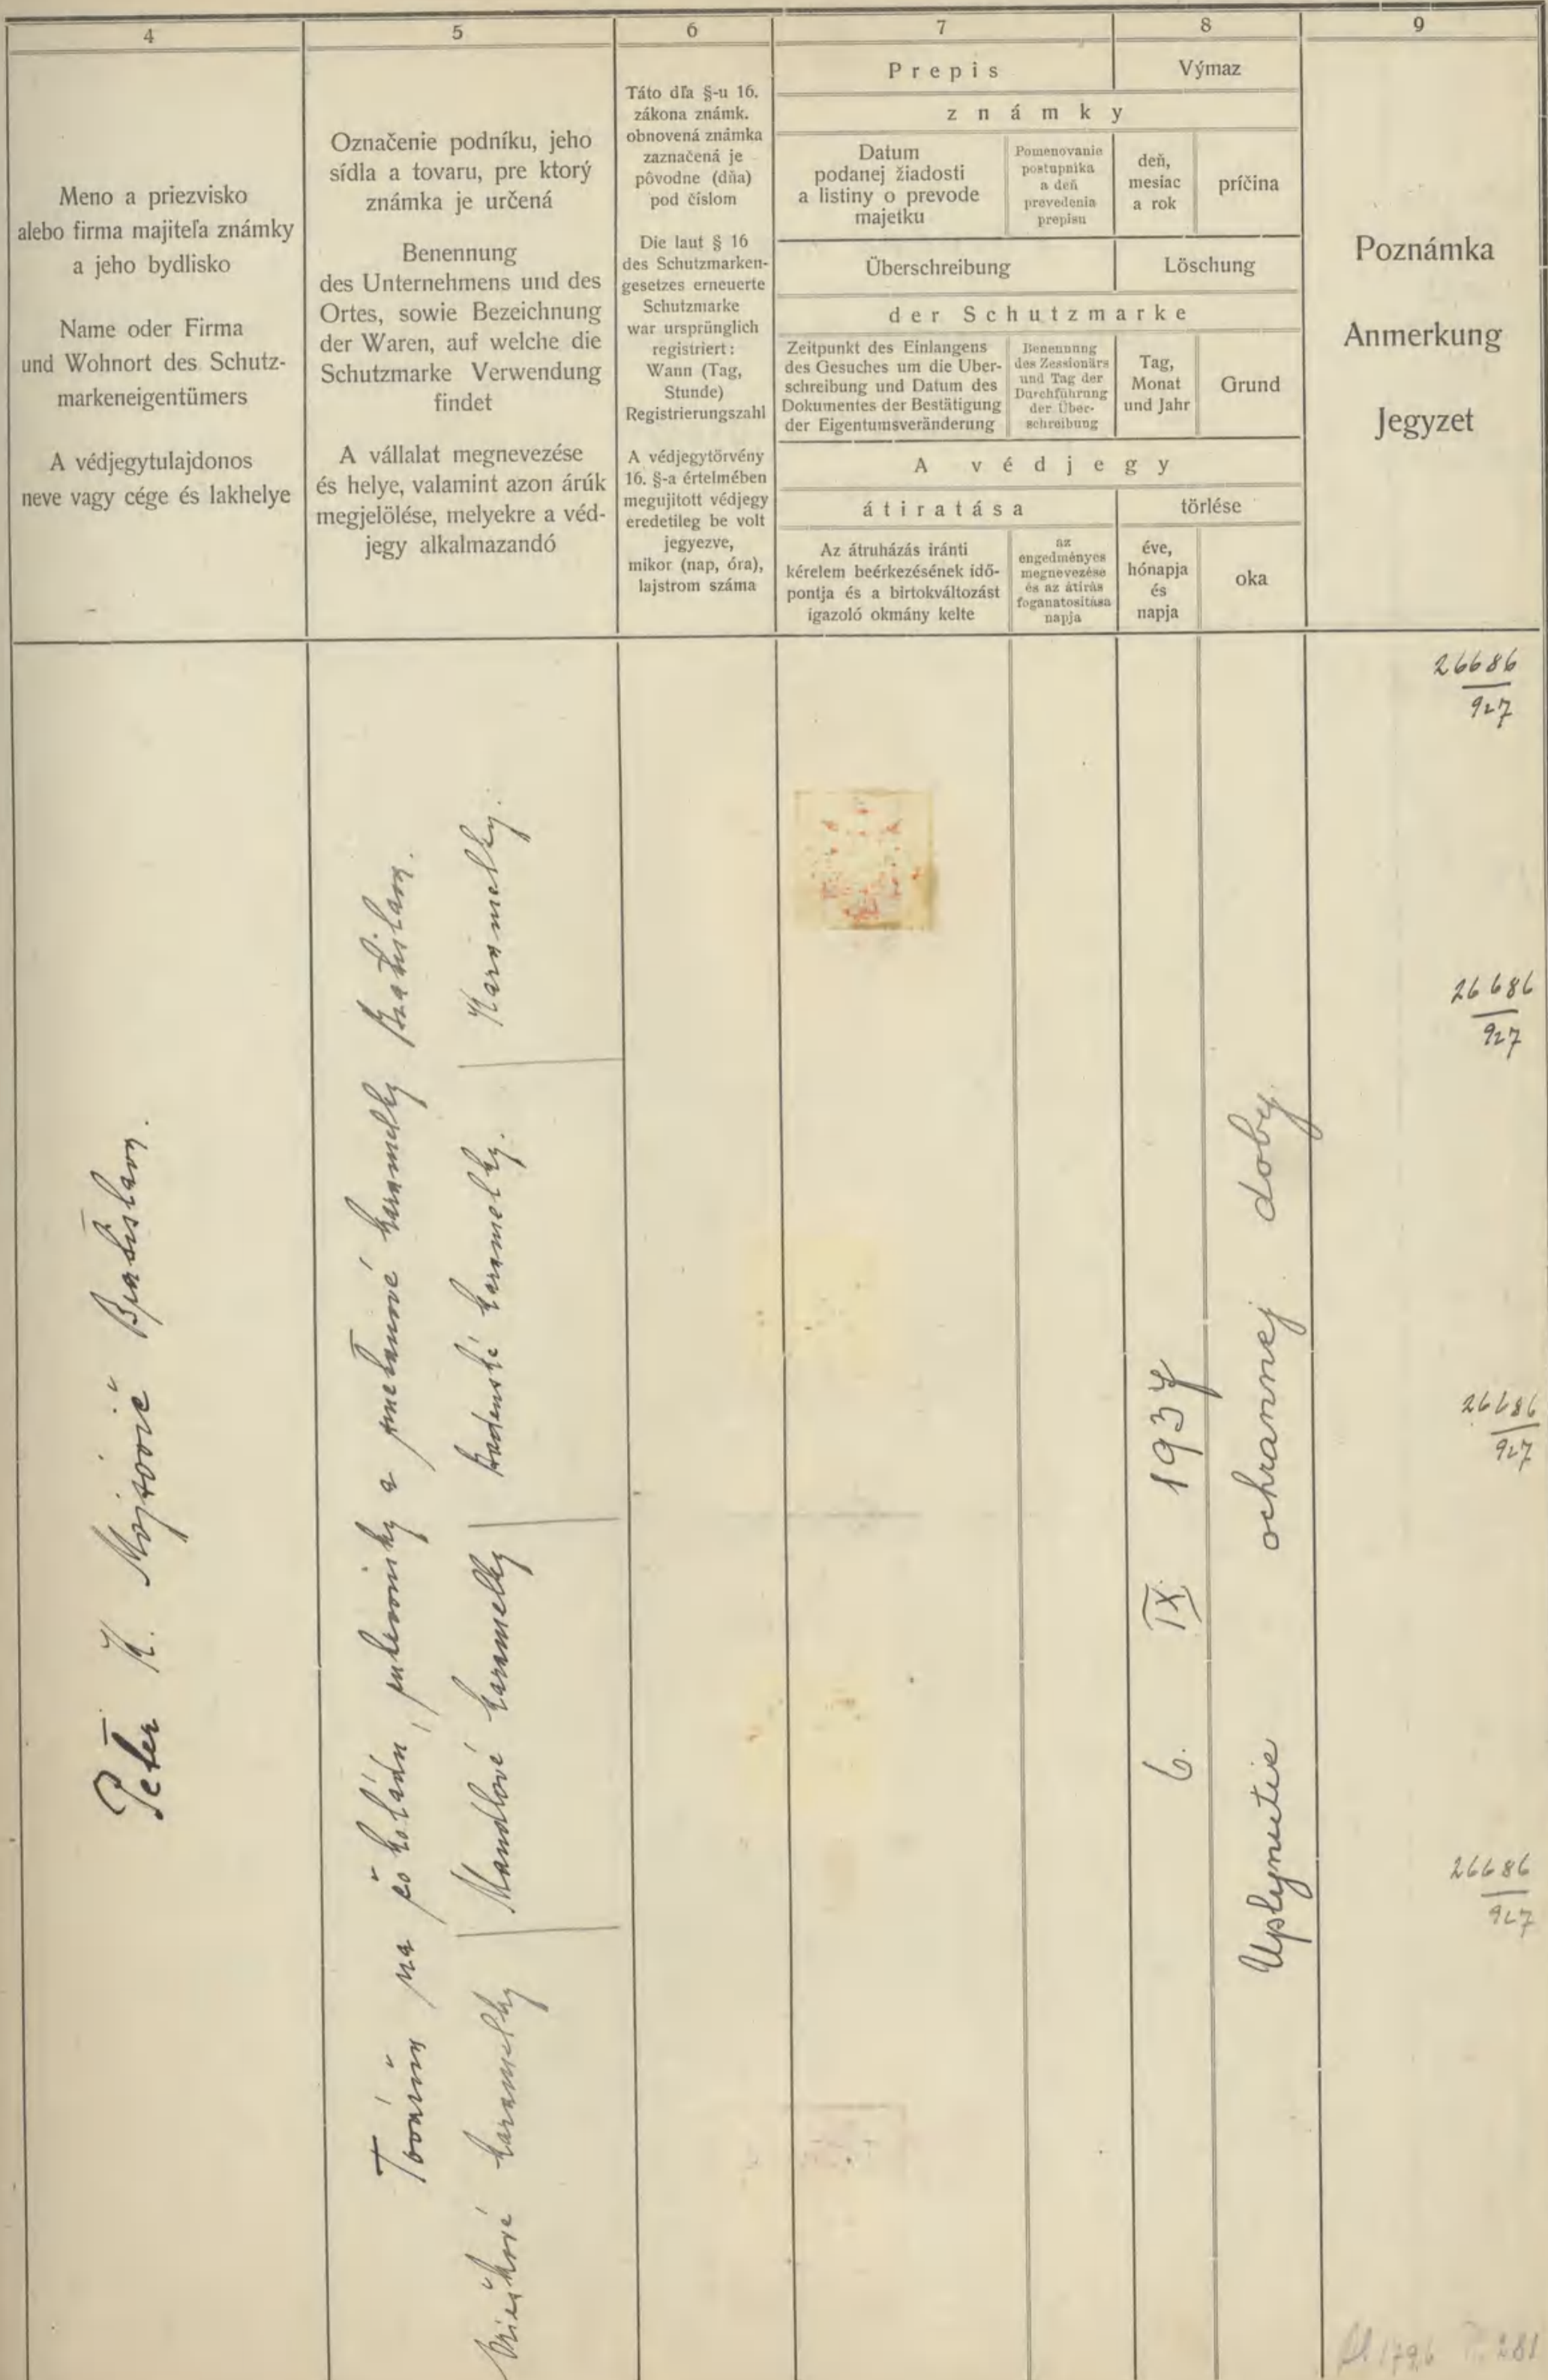 4
5
6
7
8
9
Meno a priezvisko
alebo firma majiteľa známky
a jeho bydlisko
Name oder Firma
und Wohnort des Schutz-
markeneigentümers
A védjegytulajdonos
neve vagy cége és lakhelye
Označenie podníku, jeho
sídla a tovaru, pre ktorý
známka je určená
Benennung
des Unternehmens und des
Ortes, sowie Bezeichnung
der Waren, auf welche die
Schutzmarke Verwendung
findet
A vállalat megnevezése
és helye, valamint azon árúk
megjelölése, melyekre a véd-
jegy alkalmazandó
Táto dľa §-u 16.
zákona známk.
obnovená známka
zaznačená je
pôvodne (dňa)
pod číslom
Die laut § 16
des Schutzmarken-
gesetzes erneuerte
Schutzmarke
war ursprünglich
registriert:
Wann (Tag,
Stunde)
Registrierungszahl
A védjegytörvény
16. §-a értelmében
megujitott védjegy
eredetileg be volt
jegyezve,
mikor (nap, óra),
lajstrom száma
Prepis
Výmaz
známky
Datum
podanej žiadosti
a listiny o prevode
majetku
Pomenovanie
postupníka
a deň
prevedenia
prepisu
deň,
mesiac
a rok
príčina
Überschreibung
Löschung
der Schutzmarke
Zeitpunkt des Einlangens
des Gesuches um die Über-
schreibung und Datum des
Dokumentes der Bestätigung
der Eigentumsveränderung
Benennung
des Zessionärs
und Tag der
Durchführung
der Über-
schreibung
Tag,
Monat
und Jahr
Grund
A védjegy
átiratása
törlése
Az átruházás iránti
kérelem beérkezésének idő-
pontja és a birtokváltozást
igazoló okmány kelte
az
engedményes
megnevezése
és az átírás
foganatosítása
napja
éve,
hónapja
és
napja
oka
Poznámka
Anmerkung
Jegyzet
Peter K. Mojsovič Bratislava.
Továrň na čokoládu, a smetanové karamelky Bratislava.
Orieškové karamelky
Mandlové karamelky
Badenské karamelky.
Karamelky.
6. IX. 1937
Uplynutie ochrannej doby
26686
927
26686
927
26686
927
26686
927